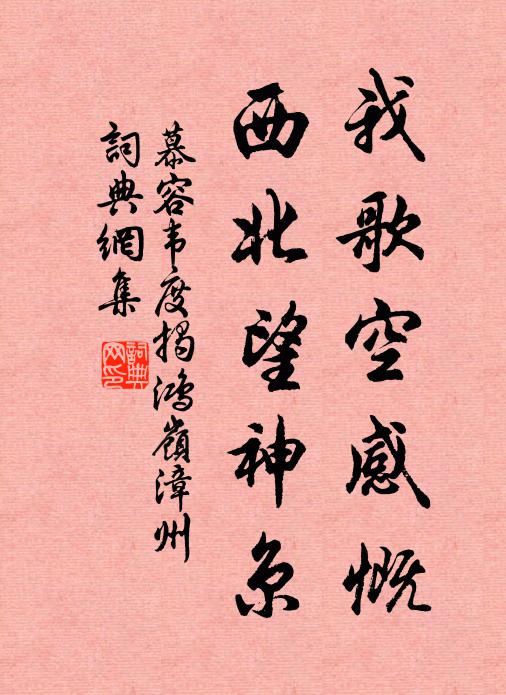 我歌空感慨
西北望神京
慕容韦度揭鸿嶺漳州
詞典網集
詞典
网印